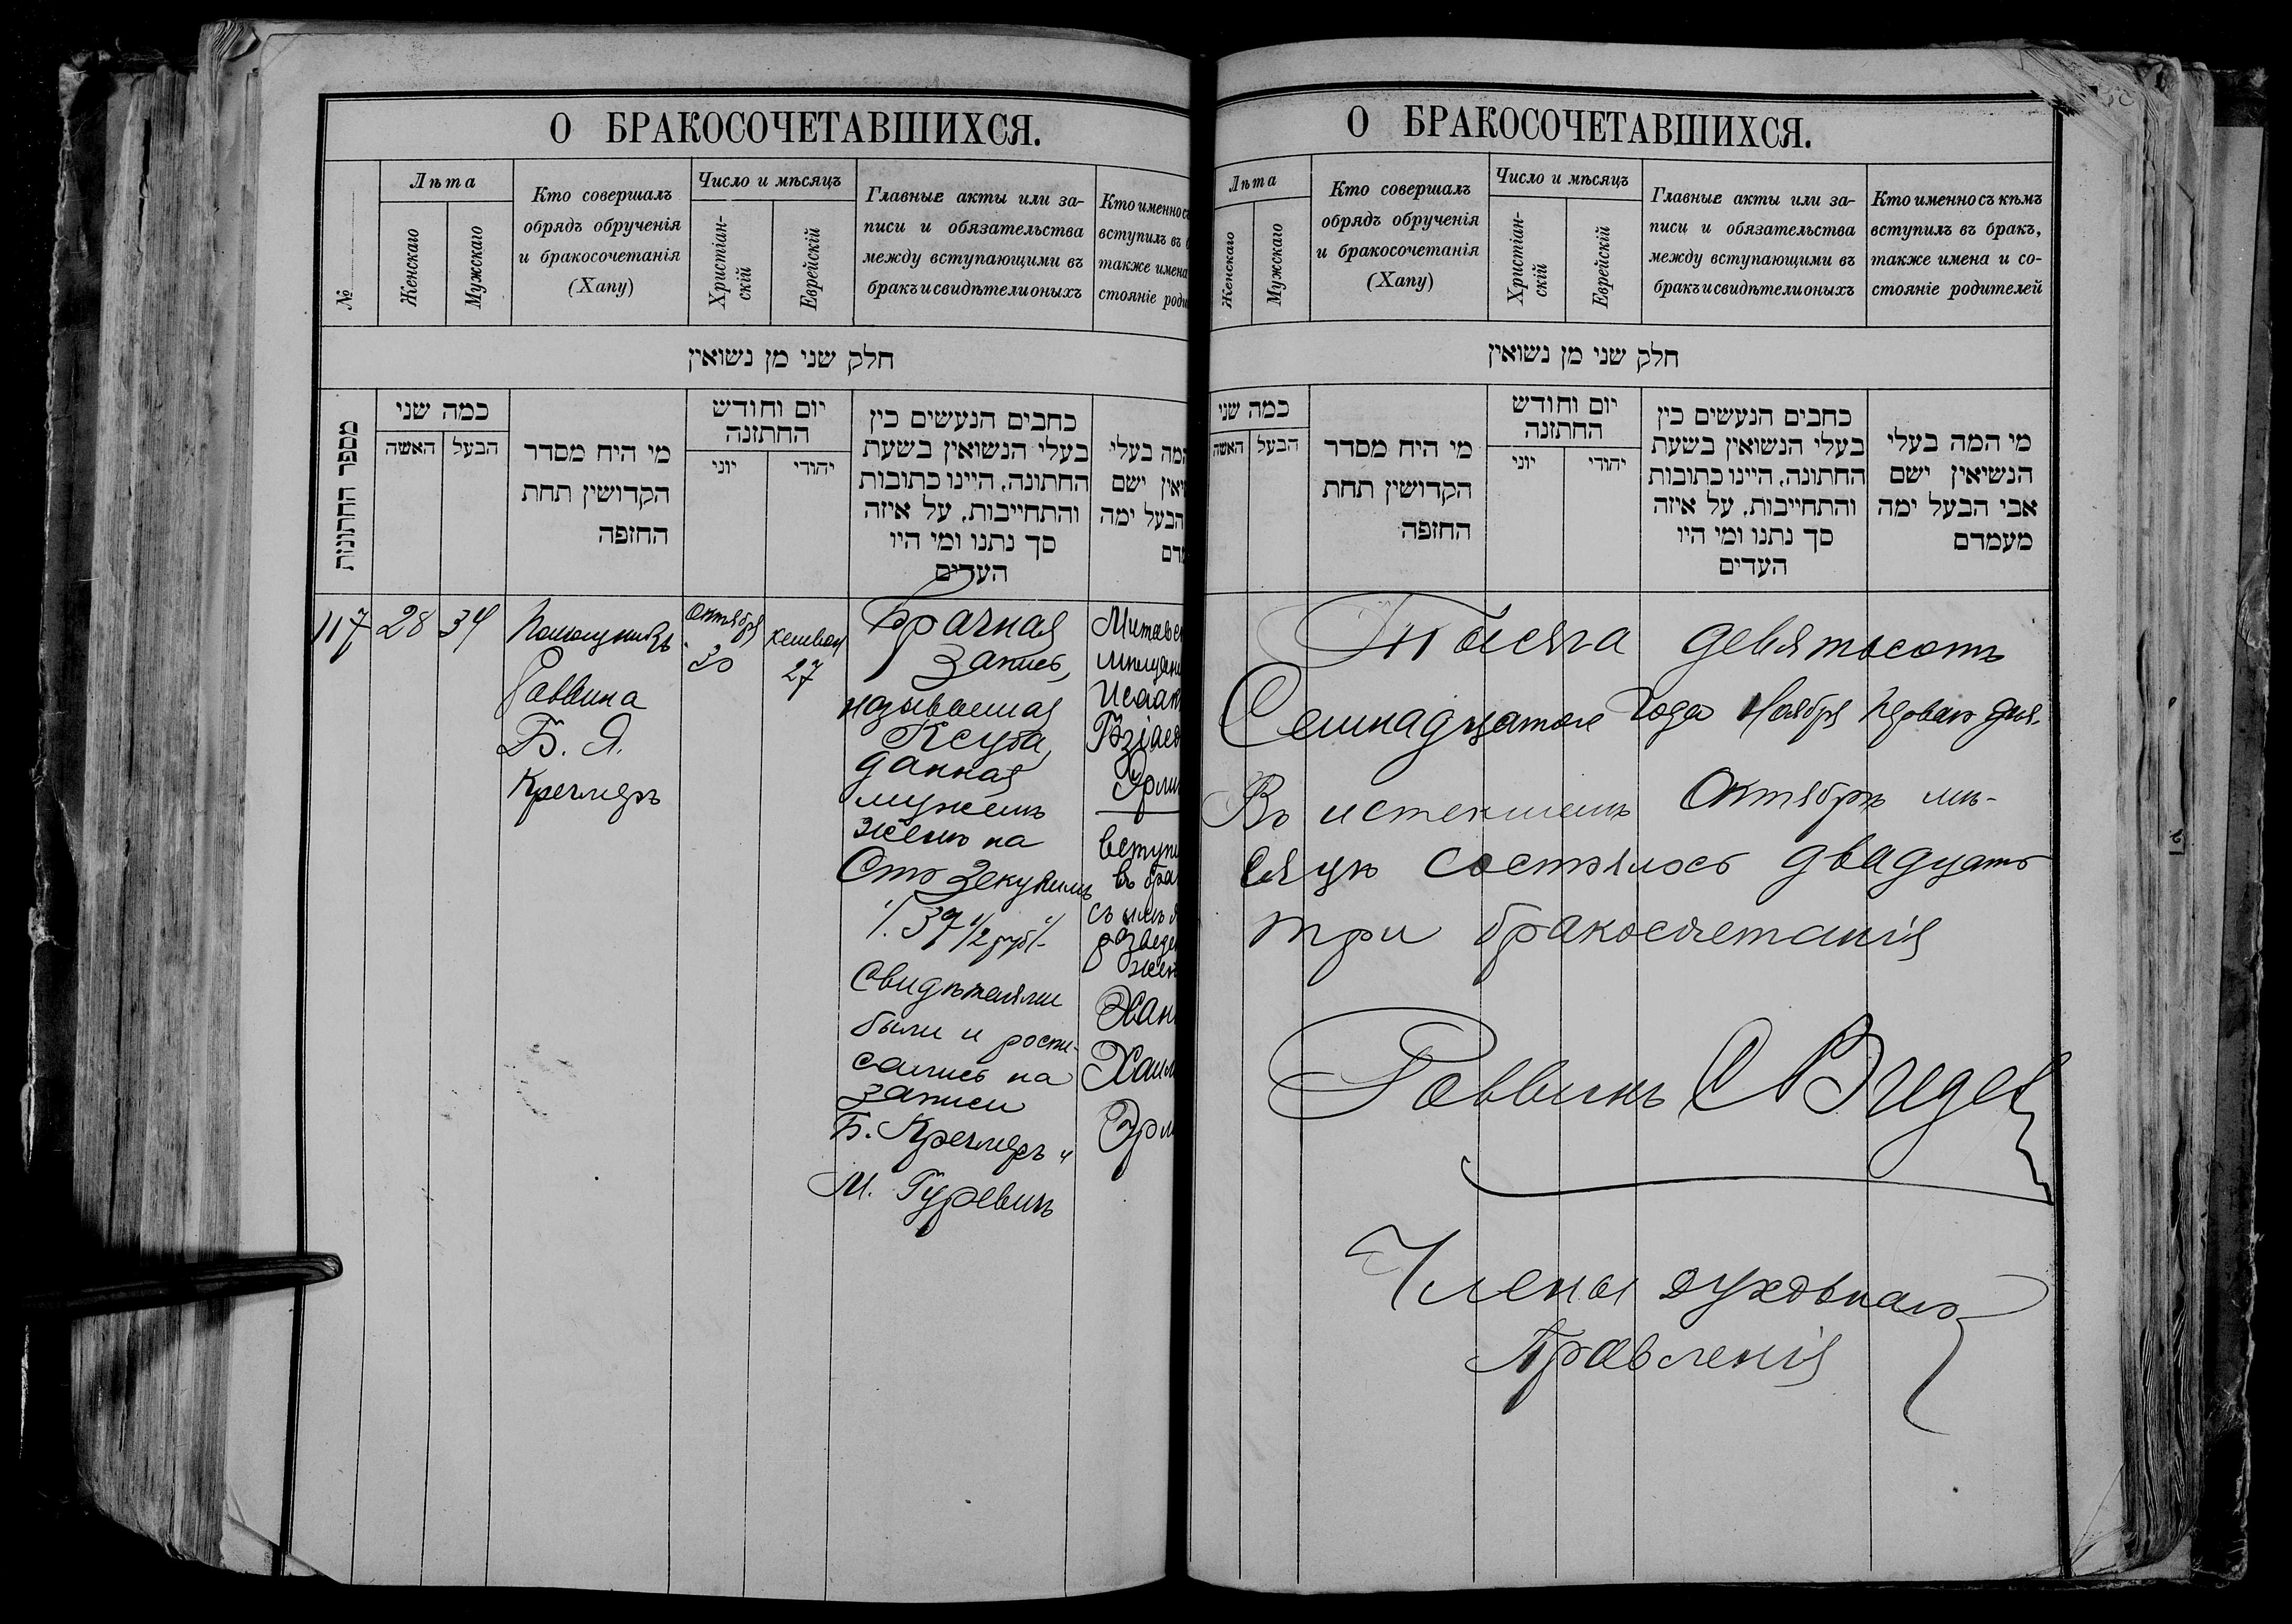 О БРАКОСОЧЕТАВШИХСЯ.
№
Лѣта
Женскаго
Мужскаго
Кто совершалъ
обрядъ обрученія
и бракосочетанія
(Хапу)
Число и мѣсяцъ
Христіан-
скій
Еврейскій
Главные акты или за-
писи и обязательства
между вступающими въ
бракъ и свидѣтели оныхъ
Кто именно съ
вступилъ въ
также имена
стояніе роди
חלק שני מן נשואין
מספר החתונות
כמה שני
האשה
הבעל
מי היח מסדר
הקדושין תחת
החופה
יום וחודש
החתונה
יוני
יהודי
כחבים הנעשים כין
בעלי הנשואין בשעת
החתונה, היינו כתובות
והתחייבות, על איזה
סך נתנו ומי היו
העדים
המה בעלי
יאין ישם
הבעל ימה
מדם
117
28
34
Помощникъ
Раввина
Б. Я.
Кречмеръ
Октября
30
Кешвон
27
Брачная
запись,
называемая
Ксуба,
данная
мужемъ
женѣ на
Сто зекукимъ
37 1/2 руб.
Свидѣтелями
были и роспи-
сались на
записи
Б. Кречмеръ и
М. Гуревичъ
Митавск
мѣщан
Исаак
Эрли
вступи
въ бра
съ
развед
жен
Хан
Хаим
Эрл
О БРАКОСОЧЕТАВШИХСЯ.
Лѣта
Женскаго
Мужскаго
Кто совершалъ
обрядъ обрученія
и бракосочетанія
(Хапу)
Число и мѣсяцъ
Христіан-
скій
Еврейскій
Главные акты или за-
писи и обязательства
между вступающими въ
бракъ и свидѣтели оныхъ
Кто именно съ кѣмъ
вступилъ въ бракъ,
также имена и со-
стояніе родителей
חלק שני מן נשואין
כמה שני
האשה
הבעל
מי היח מסדר
הקדושין תחת
החופה
יום וחודש
החתונה
יוני
יהודי
כחבים הנעשים כין
בעלי הנשואין בשעת
החתונה, היינו כתובות
והתחייבות, על איזה
סך נתנו ומי היו
העדים
מי המה בעלי
הנשיאין ישם
אבי הבעל ימה
מעמדם
Тысяча девятьсотъ
Семнадцатаго года Ноября перваго дня.
Въ истекшемъ Октябрѣ мѣ-
сяцѣ состоялось двадцать
три бракосочетанія
Раввинъ
Члены духовнаго
Правленія